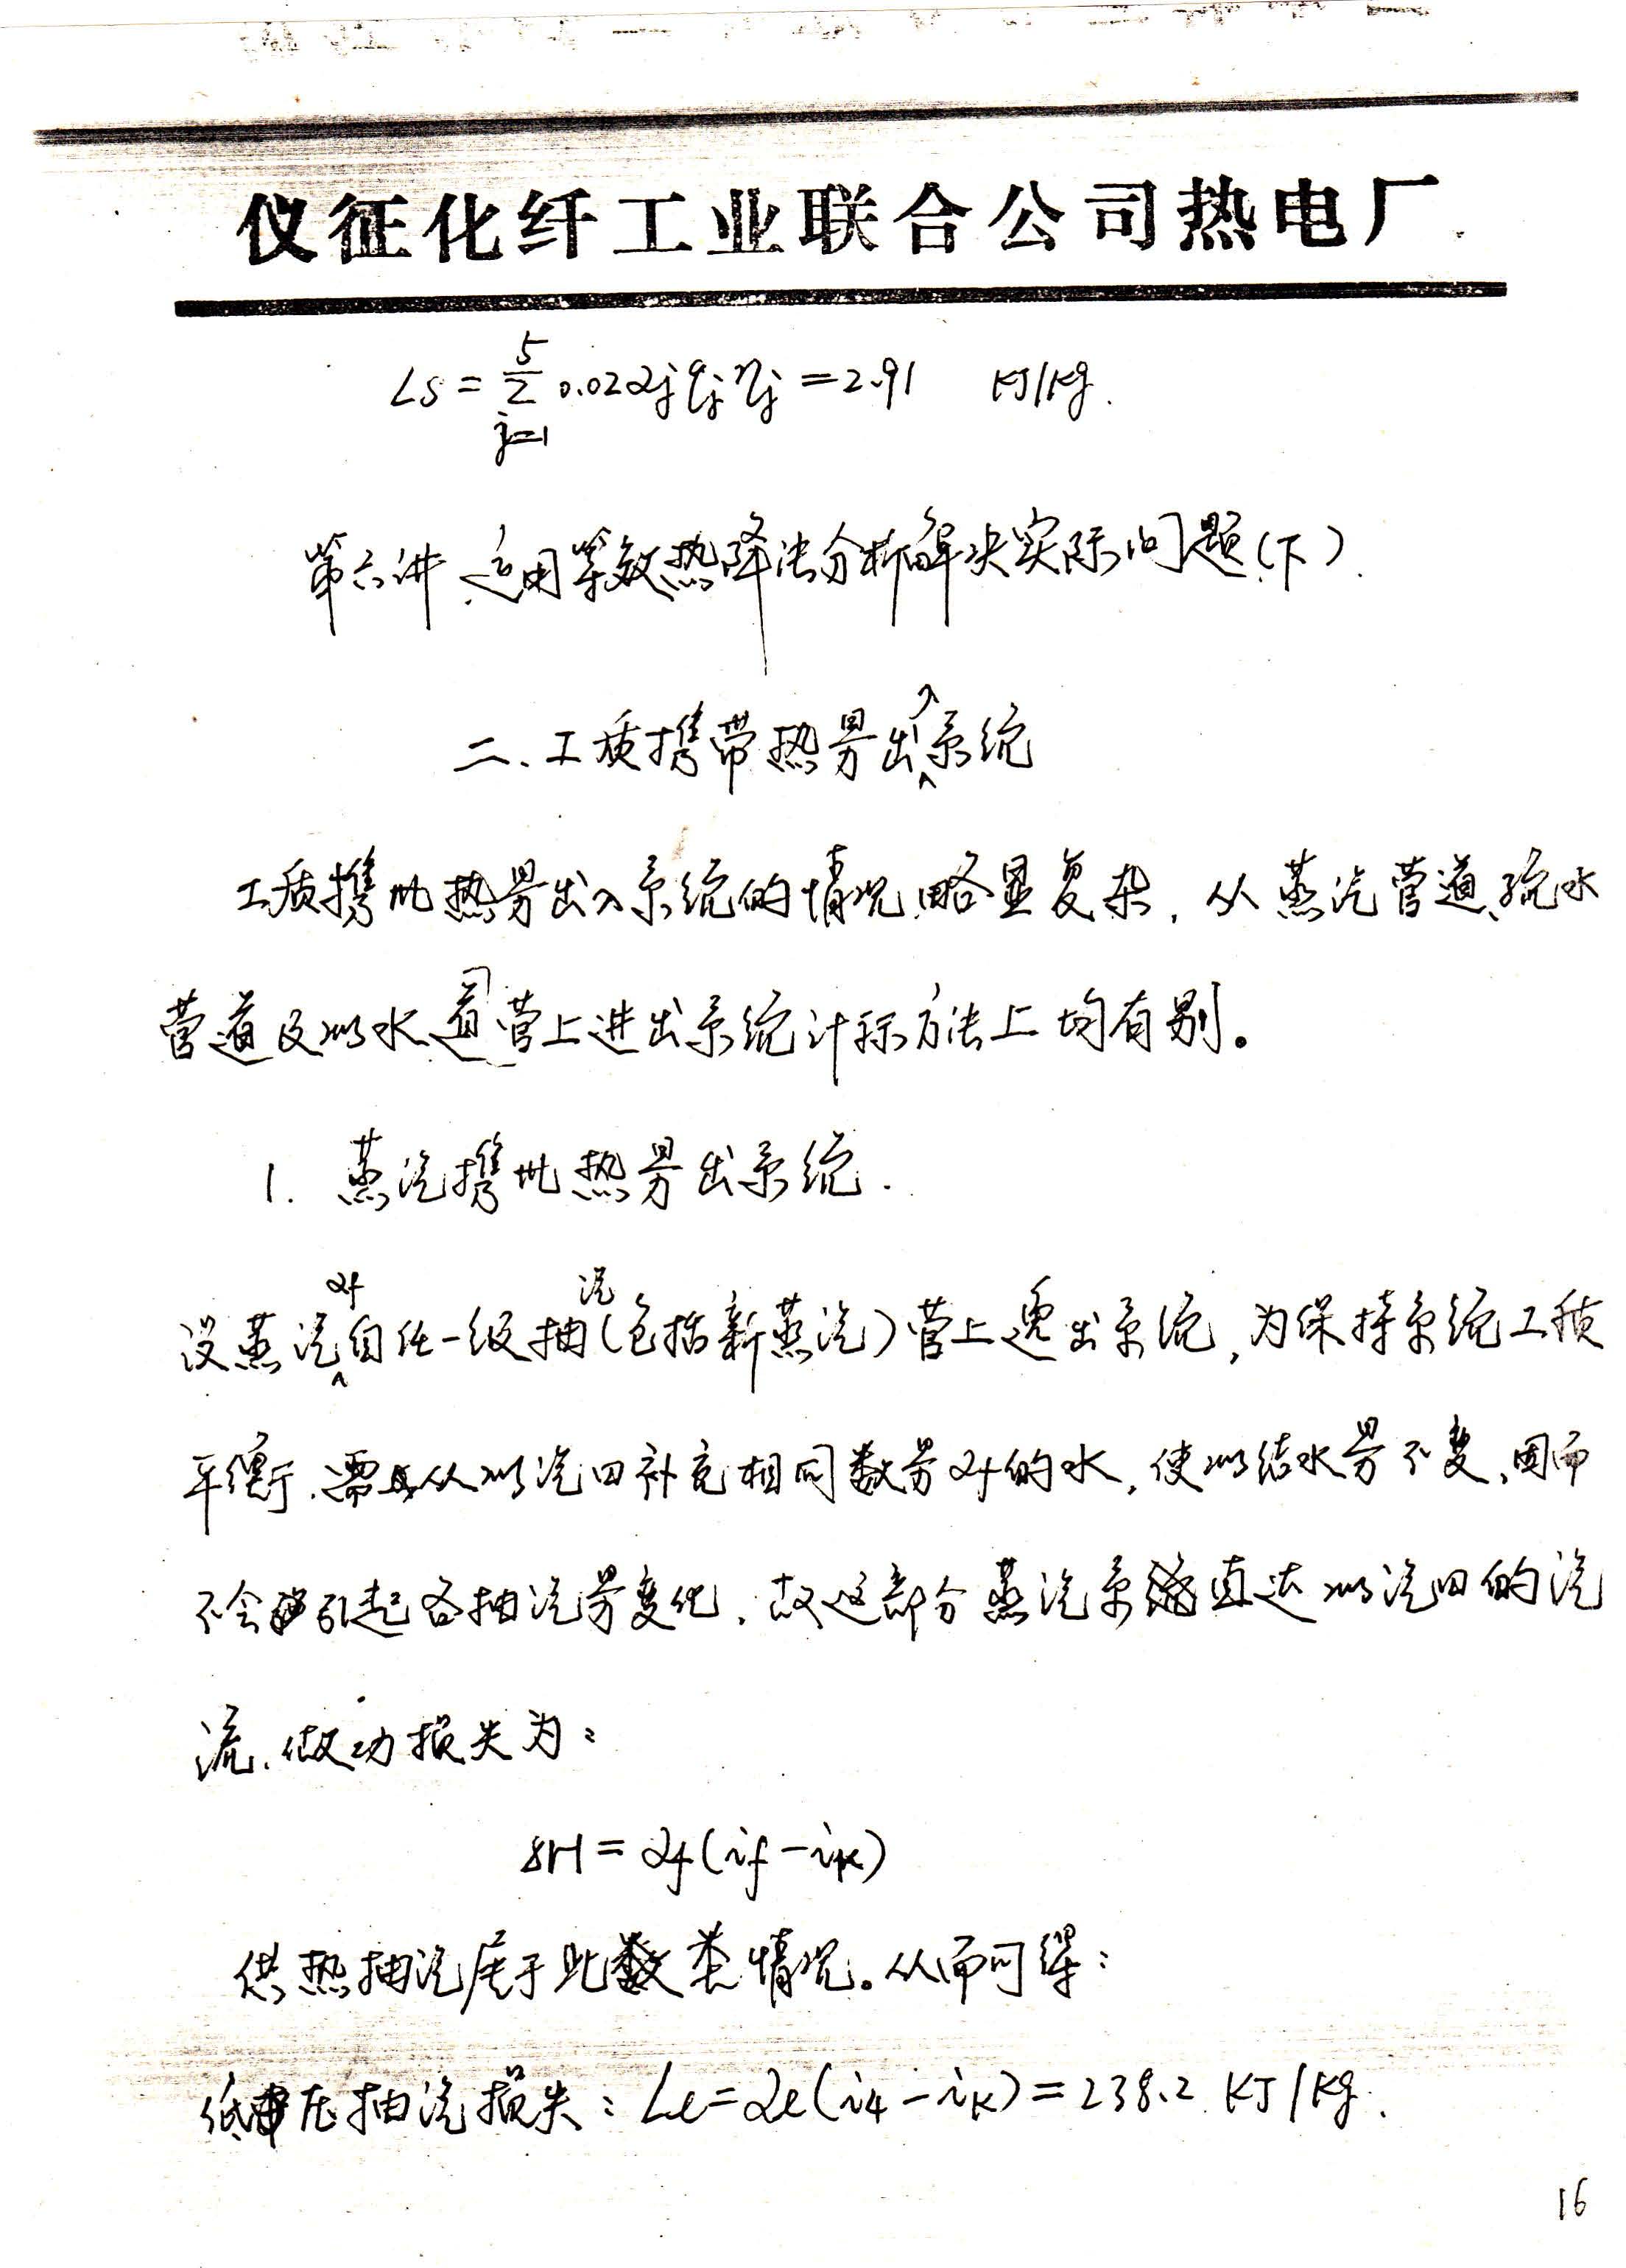 仪征化纤工业联合公司热电厂
Ls = Σ(j=1→5) 0.02αjqjηj = 2.91 KJ/Kg.
第六讲 运用等效热降法分析解决实际问题(下).
二、工质携带热量出入系统
工质携带热量出入系统的情况略显复杂，从蒸汽管道、疏水
管道及凝水道管上进出系统计标方法上均有别。
1. 蒸汽携带热量出系统.
没蒸汽αf自任一级抽汽(包括新蒸汽)管上逸出系统,为保持系统工质
平衡,需从凝汽口补充相同数量αf的水,使凝结水量不变,因而
不会引起各抽汽量变化,故这部分蒸汽系直达凝汽口的汽
流.做功损失为:
δH = αf(if - ik)
供热抽汽属于此类情况。从而可得:
低压抽汽损失: Le = αe(i4 - iK) = 238.2 KJ/Kg.
16